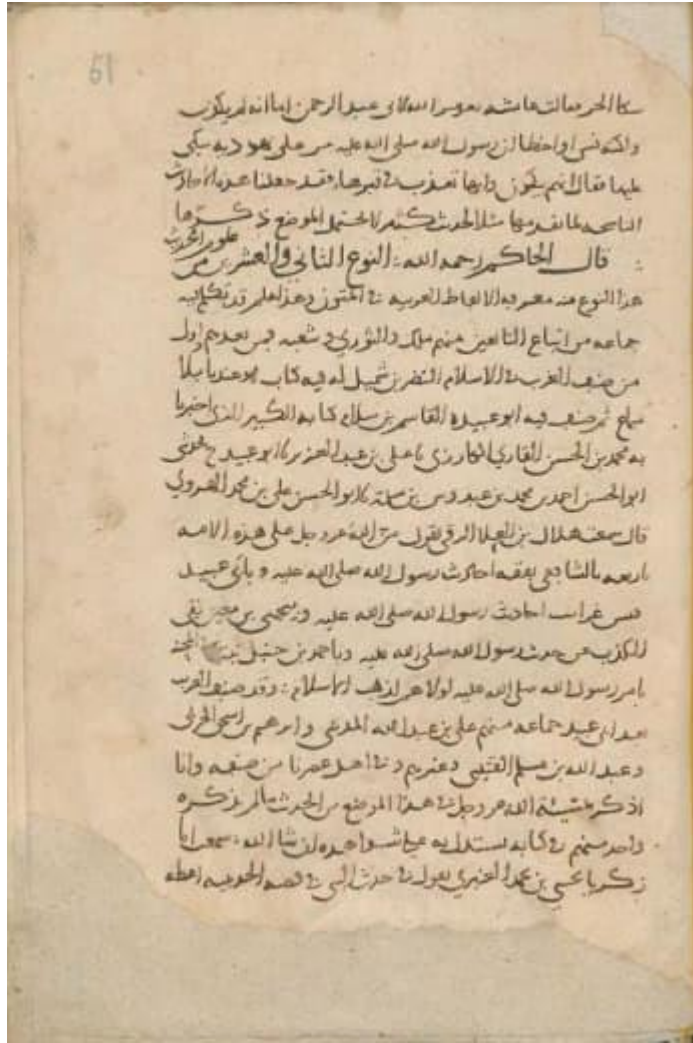 61
بكا الحي فقالت عائشة يغفر الله لابي عبد الرحمن اما انه لم يكذب
ولكنه نسي او اخطا ان رسول الله صلى الله عليه مر على يهودية يبكى
عليها فقال انهم يبكون وانها تعذب في قبرها وقد جعلنا هذه الاحاديث
الناسخه لما تقدمها مثلا لحديث كثير لا يحتمل الموضع ذكرها
قال الحاكم رحمه الله النوع الثاني والعشرين من علوم الحديث
هذا النوع منه معرفه الالفاظ الغريبه في المتون وهذا علم قد تكلم فيه
جماعه من اتباع التابعين منهم ملك والثوري وشعبه فمن بعدهم اول
من صنف الغريب في الاسلام النضر بن شميل له فيه كتاب هو عندنا بلا
سماع ثم صنف فيه ابو عبيده القاسم بن سلام كتابه الكبير الذي اخبرنا
به محمد بن الحسن القاري الكارزي نا علي بن عبد العزيز نا ابو عبيد ح
ابو الحسن احمد بن محمد بن عبدوس بن سلمة نا ابو الحسن علي بن محمد الهروي
قال سمعت هلال بن العلا الرقي يقول من الله عز وجل على هذه الامه
باربعه بالشافعي بفقه احاديث رسول الله صلى الله عليه وبابي عبيد
فسر غرايب احاديث رسول الله صلى الله عليه وبيحيى بن معين نفى
الكذب عن حديث رسول الله صلى الله عليه وباحمد بن حنبل ثبت المحنة
بامر رسول الله صلى الله عليه لولاهم لذهب الاسلام وقد صنف الغريب
بعد ابي عبيد جماعه منهم علي بن عبد الله المديني وابرهيم بن اسحق الحربي
وعبد الله بن مسلم القتيبي وغيرهم وفي اهل عصرنا من صنفه وانا
اذكر بمشيئة الله عز وجل في هذا الموضع من الحديث ما لم يذكره
واحد منهم في كتابه يستدل به على شواهده ان شا الله سمعت ابا
زكريا يحيى بن محمد العنبري يقول في حديث النبي في قصه